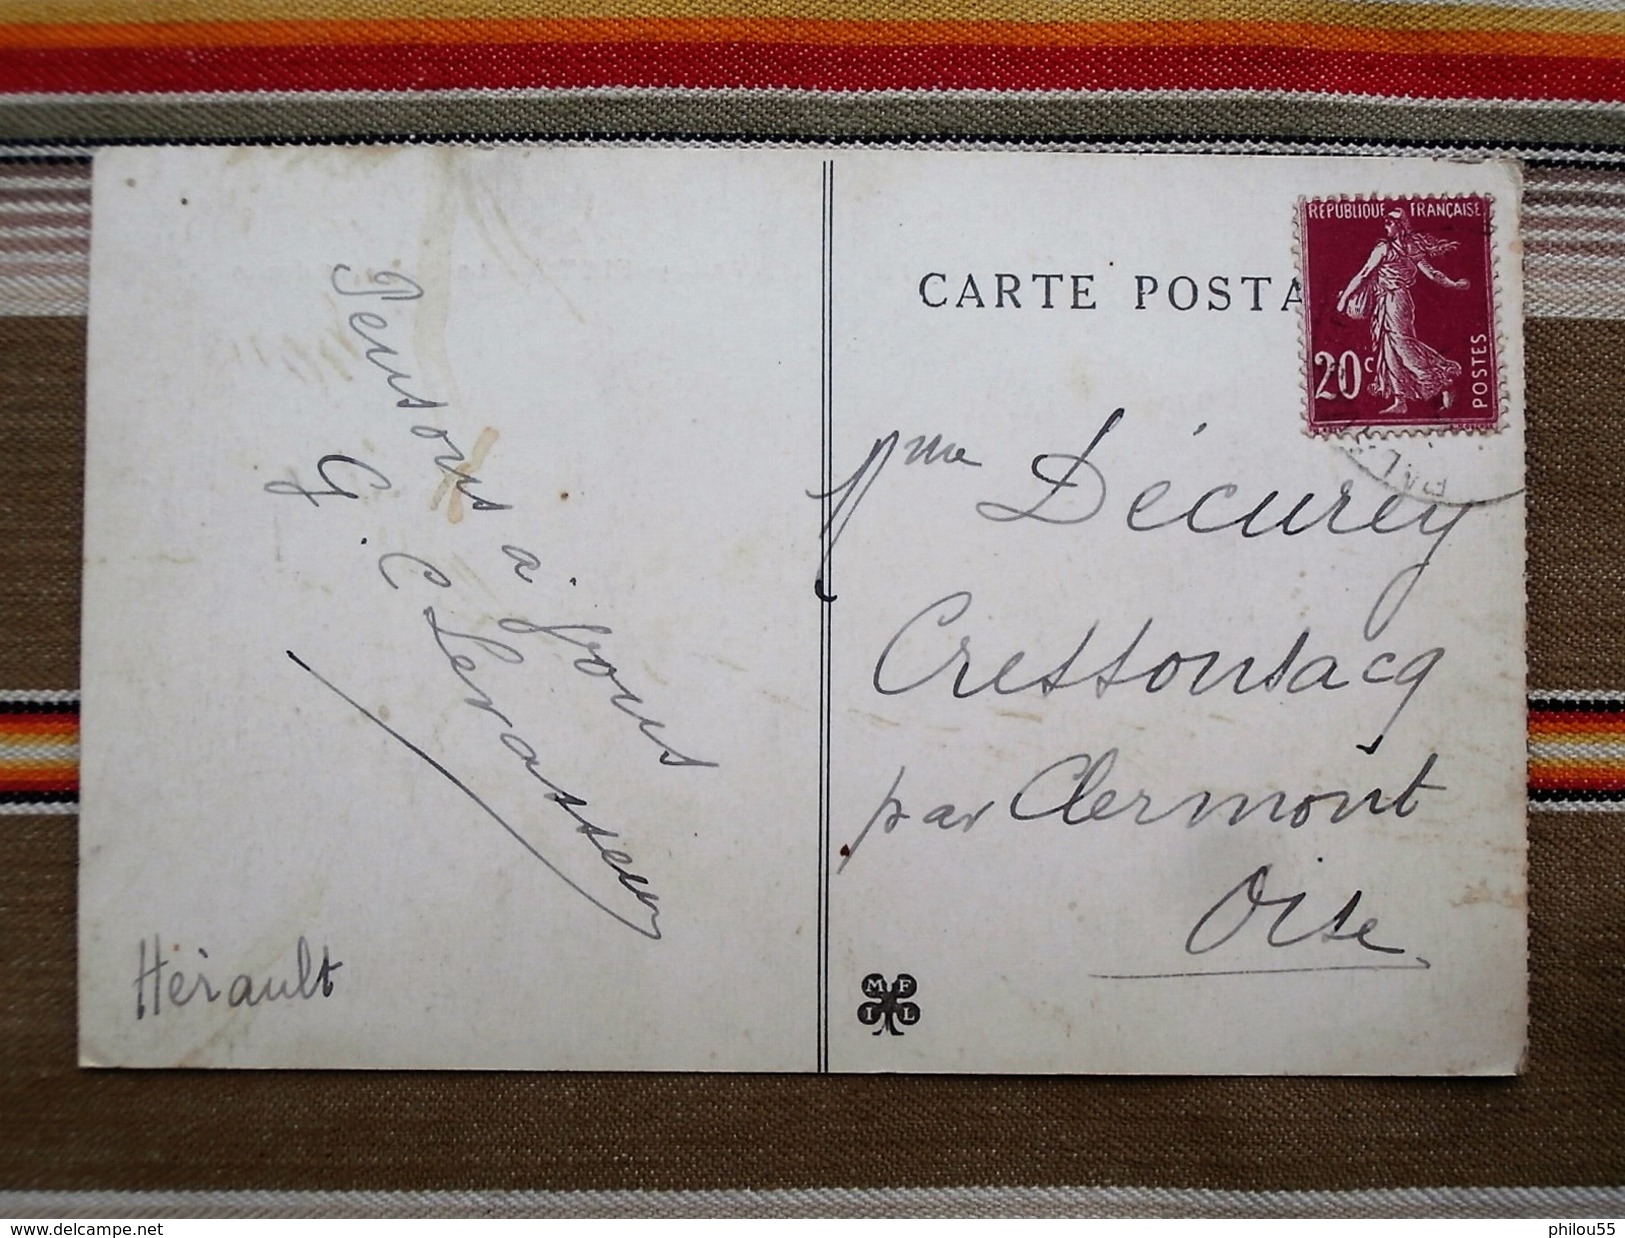 Pensons à vous
G. C Levasseur
Hérault
CARTE POSTA
RÉPUBLIQUE FRANÇAISE
20c
POSTES
Mme Décurey
Cressonsacq
par Clermont
Oise
M F
I L
website : www.delcampe.net
philou55